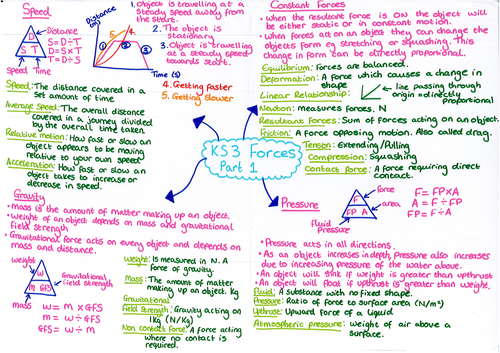 Speed
Distance
D
S T
S=D÷T
D=S×T
T=D÷S
Speed Time
Distance
(m)
1
2
3
4
5
Time (s)
1. Object is travelling at a
Steady speed away from
the start.
2. The object is
stationary
3. Object is travelling
at a steady speed
towards start.
4. Getting faster
5. Getting slower
Speed: The distance covered in a
Set amount of time
Average speed: The overall distance
covered in a journey divided
by the overall time taken.
Relative motion: How fast or slow an
object appears to be moving
relative to your own speed
Acceleration: How fast or slow an
object takes to increase or
decrease in speed.
Constant Forces
• When the resultant force is ON the object will
be either static or in constant motion.
• When forces act on an object they can change the
objects form eg stretching or squashing. This
change in form can be directly proportional.
Equilibrium: Forces are balanced.
Deformation: A force which causes a change in
shape
Linear Relationship:
line passing through
origin = directly
proportional
Newton: measures forces. N
Resultant forces: Sum of forces acting on an object.
Friction: A force opposing motion. Also called drag.
Tension: Extending/Pulling
Compression: Squashing
Contact force: A force requiring direct
contact.
KS3 Forces
Part 1
Gravity
• Mass is the amount of matter making up an object.
• Weight of an object depends on mass and gravitational
field strength
• Gravitational force acts on every object and depends on
mass and distance.
weight
W
M GFS
Gravitational
field strength
mass
W = M × GFS
M = W ÷ GFS
GFS = W ÷ M
Weight: Is measured in N. A
force of gravity.
Mass: The amount of matter
making up an object. Kg
Gravitational
Field strength: Gravity acting on
1kg (N/Kg)
Non contact force: A force acting
where no contact is
required.
Pressure
F
FP A
force
area
fluid
Pressure
F = FP×A
A = F ÷ FP
FP = F ÷ A
• Pressure acts in all directions.
• As an object increases in depth, pressure also increases
due to increasing pressure of the water above.
• An object will sink if weight is greater than upthrust
• An object will float if upthrust is greater than weight.
Fluid: A substance with no fixed shape.
Pressure: Ratio of force to surface area (N/m²)
Upthrust: Upward force of a liquid
Atmospheric pressure: weight of air above a
surface.